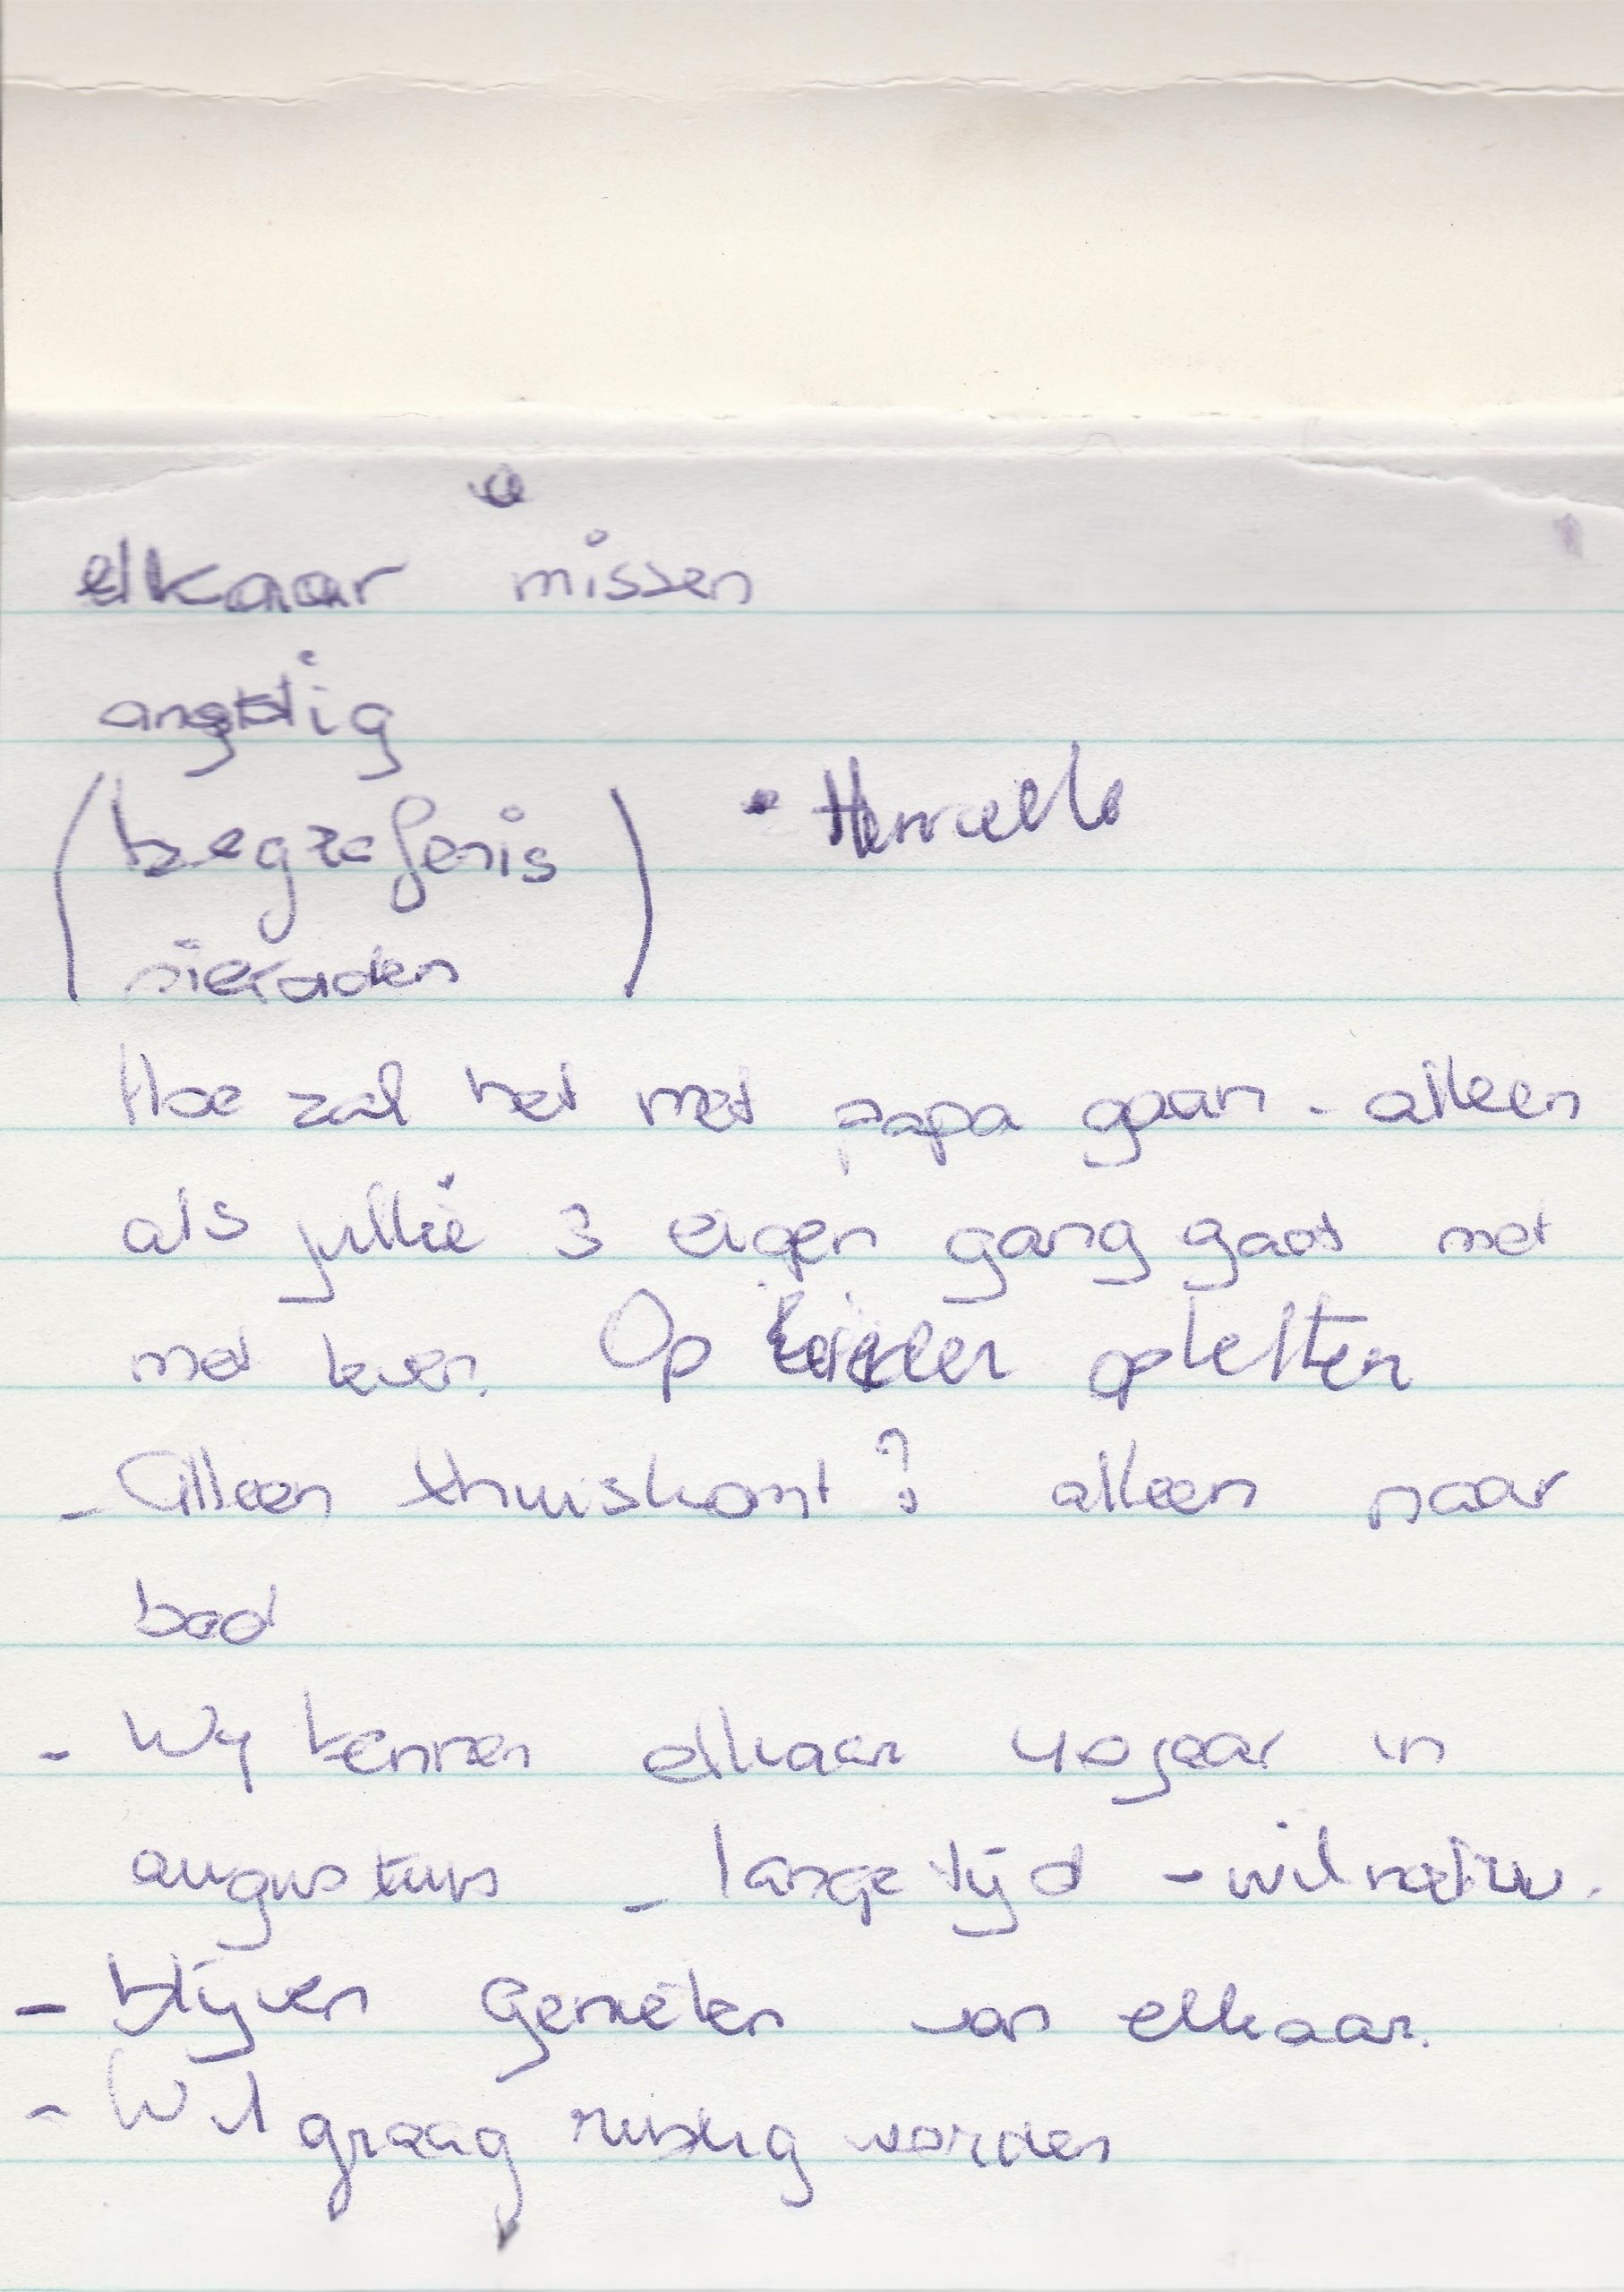 elkaar missen
angstig
(begrafenis)
sieraden
Hoe zal het met papa gaan - alleen
als jullie 3 eigen gang gaat met
met leven. Op opletten
- Alleen thuiskomt? alleen naar
bed
- Wij kennen elkaar 40 jaar in
augustus - lange tijd - wil
- blijven genieten van elkaar.
- Wil graag rustig worden